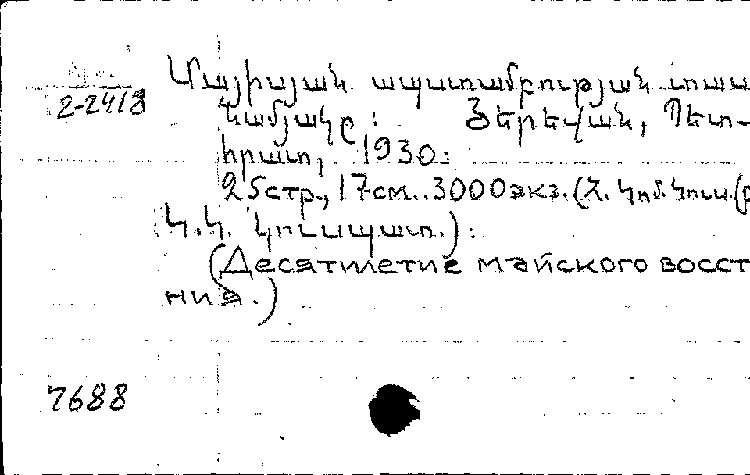 2-2418
Մայիսյան ապստամբության տասն
նամյակը: Յերեվան, Պետ-
հրատ, 1930:
25стр., 17см. 3000экз. (Հ. Կոմ. Կուս. (բ
Կ.Կ. կուսպատ.):
(Десятилетие майского восст
ния.)
7688